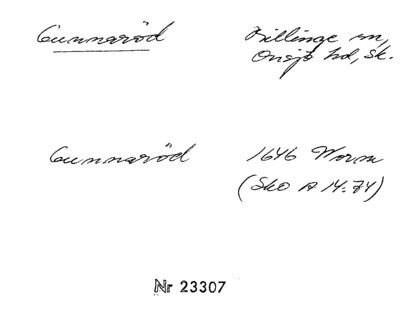 Gunnaröd
Billinge sn,
Onsjö hd, Sk.
Gunnaröd
1646 Worm
(SkO A 14:74)
Nr 23307